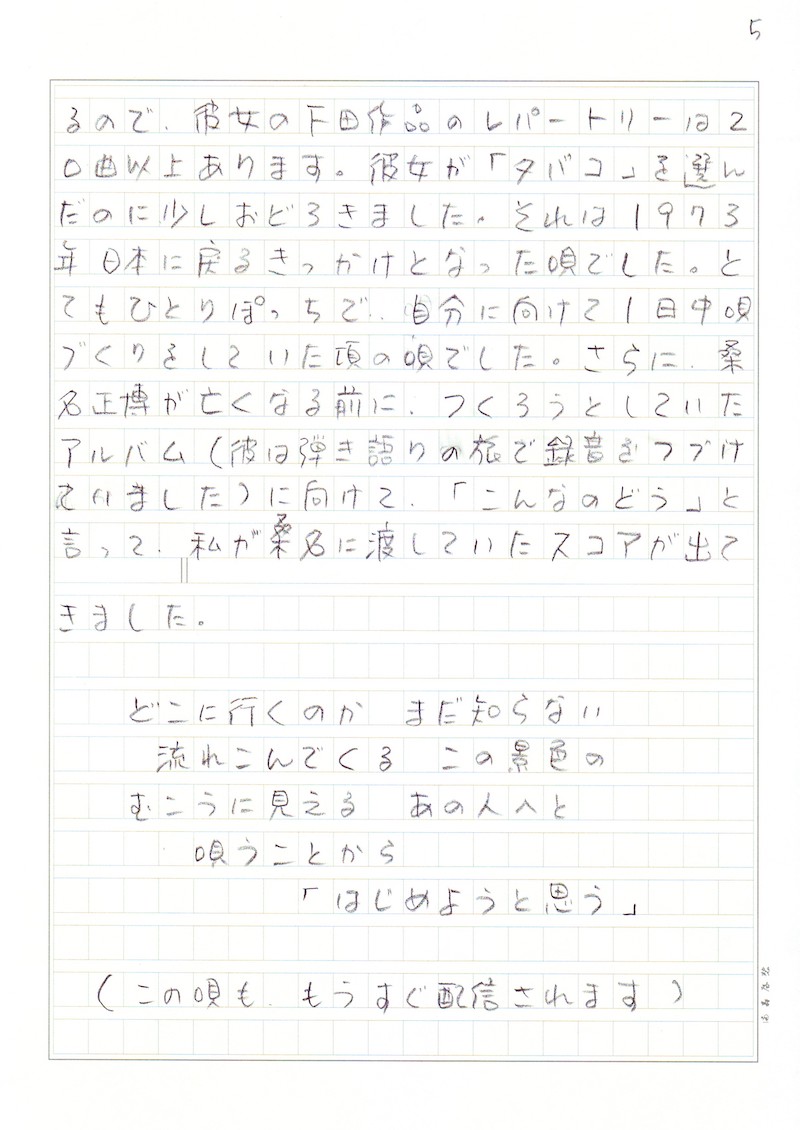 5
るので、彼女の下田作品のレパートリーは2
0曲以上あります。彼女が「タバコ」を選ん
だのに少しおどろきました。それは1973
年日本に戻るきっかけとなった唄でした。と
てもひとりぽっちで、自分に向けて1日中唄
づくりをしていた頃の唄でした。さらに、桑
名正博が亡くなる前に、つくろうとしていた
アルバム(彼は弾き語りの旅で録音をつづけ
ていました)に向けて、「こんなのどう」と
言って、私が桑名に渡していたスコアが出て
きました。
どこに行くのか まだ知らない
流れこんでくる この景色の
むこうに見える あの人へと
唄うことから
「はじめようと思う」
(この唄も、もうすぐ配信されます)